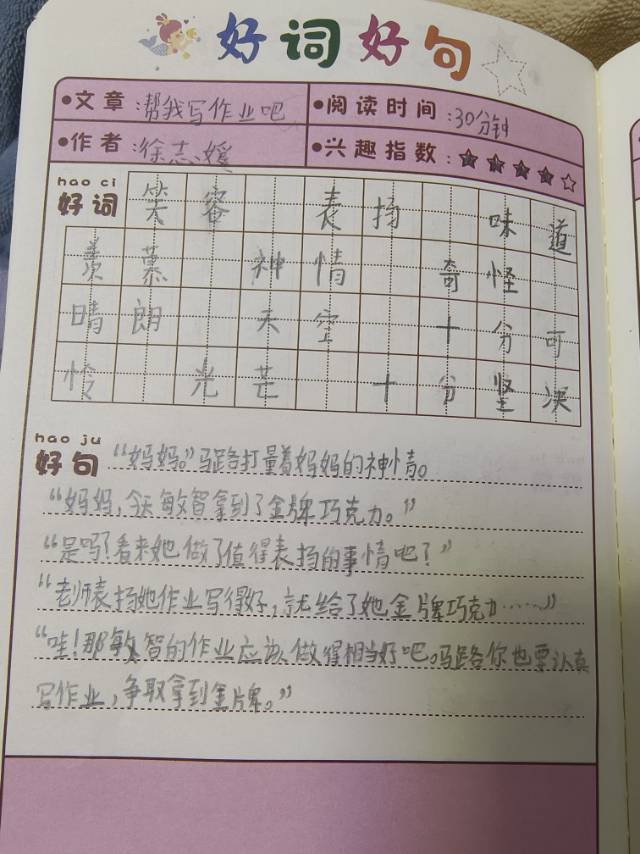 好词好句
•文章:帮我写作业吧 •阅读时间:30分钟
•作者:徐志媛 •兴趣指数:
hao ci
好词 笑窝 表扬 味道
羡慕 神情 奇怪
晴朗 天空 十分可
怜 光芒 十分坚决
hao ju
好句 “妈妈。”马路打量着妈妈的神情。
“妈妈,今天敏智拿到了金牌巧克力。”
“是吗?看来她做了值得表扬的事情吧?”
“老师表扬她作业写得好,就给了她金牌巧克力……”
“哇!那敏智的作业应该做得相当好吧。马路你也要认真
写作业,争取拿到金牌。”